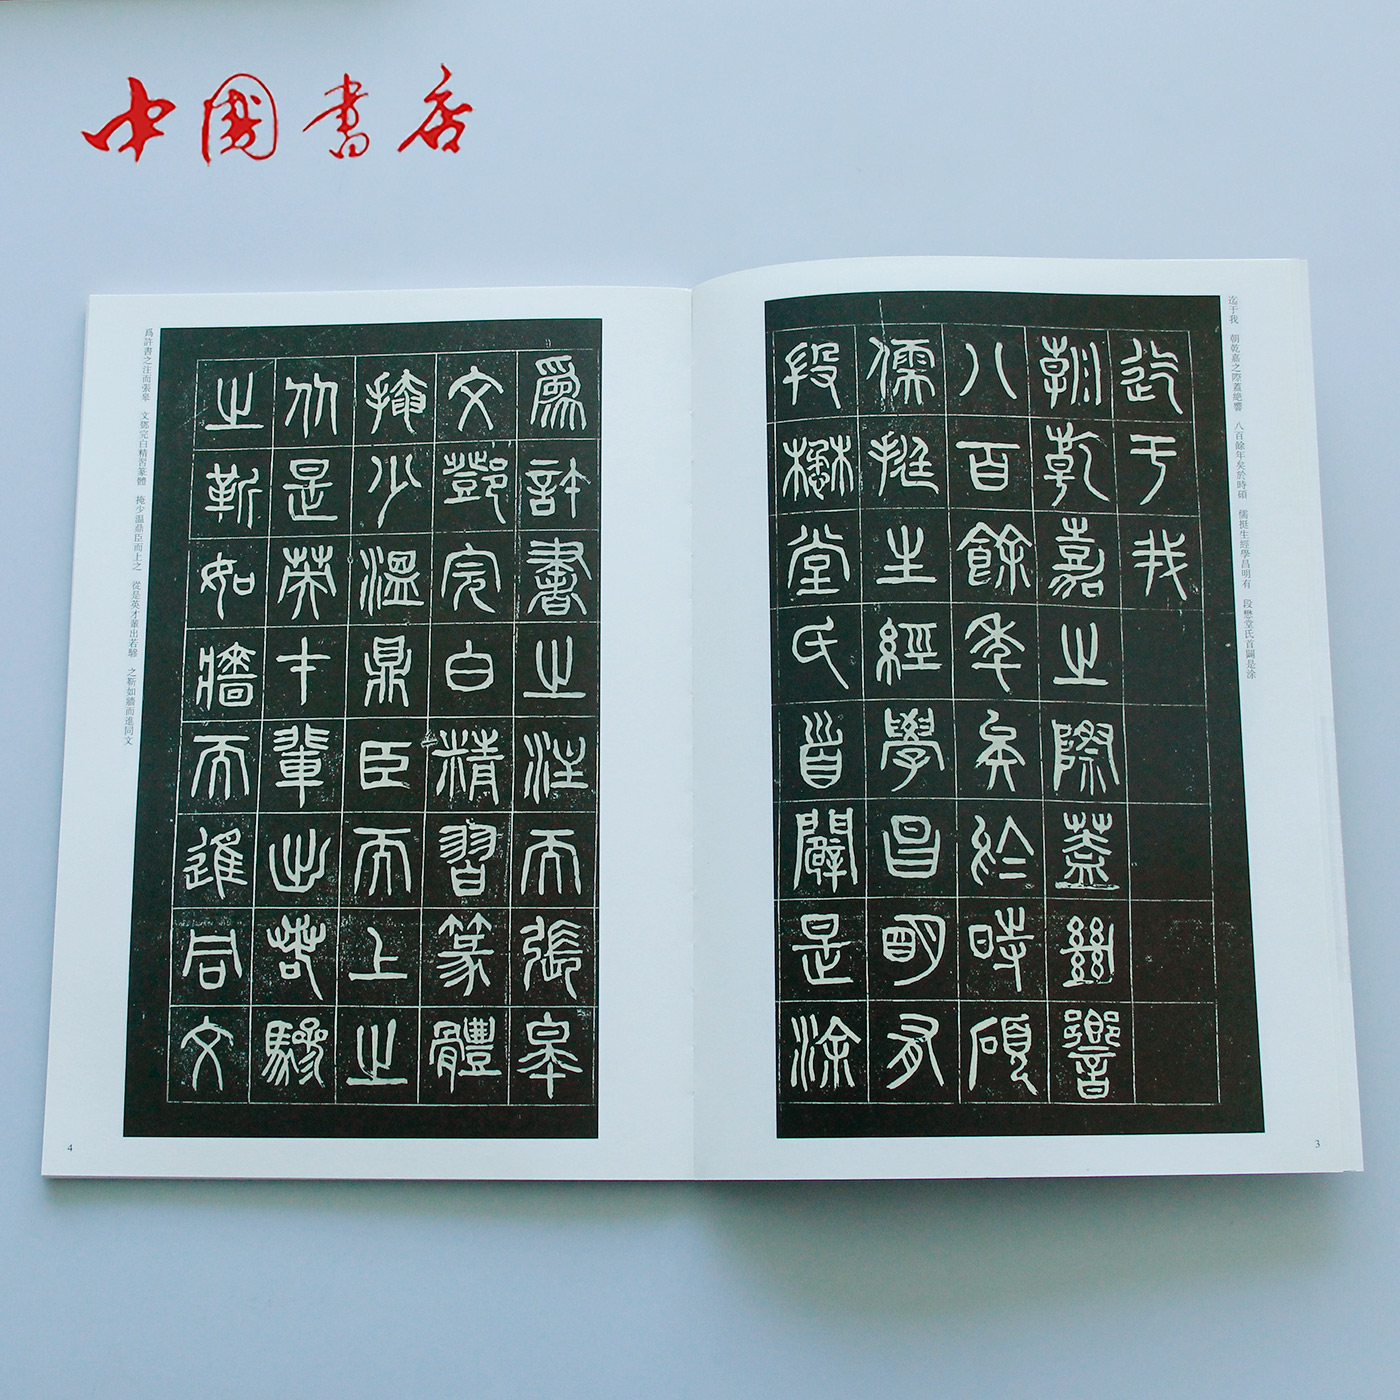 中國書店
迄于我　朝乾嘉之際蓋絕響　八百餘年矣於時碩　儒挺生經學昌明有　段懋堂氏首闢是涂
迄于我
朝乾嘉之際蓋絕響
八百餘年矣於時碩
儒挺生經學昌明有
段懋堂氏首闢是涂
3
為許書之注而張皋　文鄧完白精習篆體　掩少溫鼎臣而上之　從是英才輩出若驂　之靳如牆而進同文
為許書之注而張皋
文鄧完白精習篆體
掩少溫鼎臣而上之
从是英才輩出若驂
之靳如牆而進同文
4